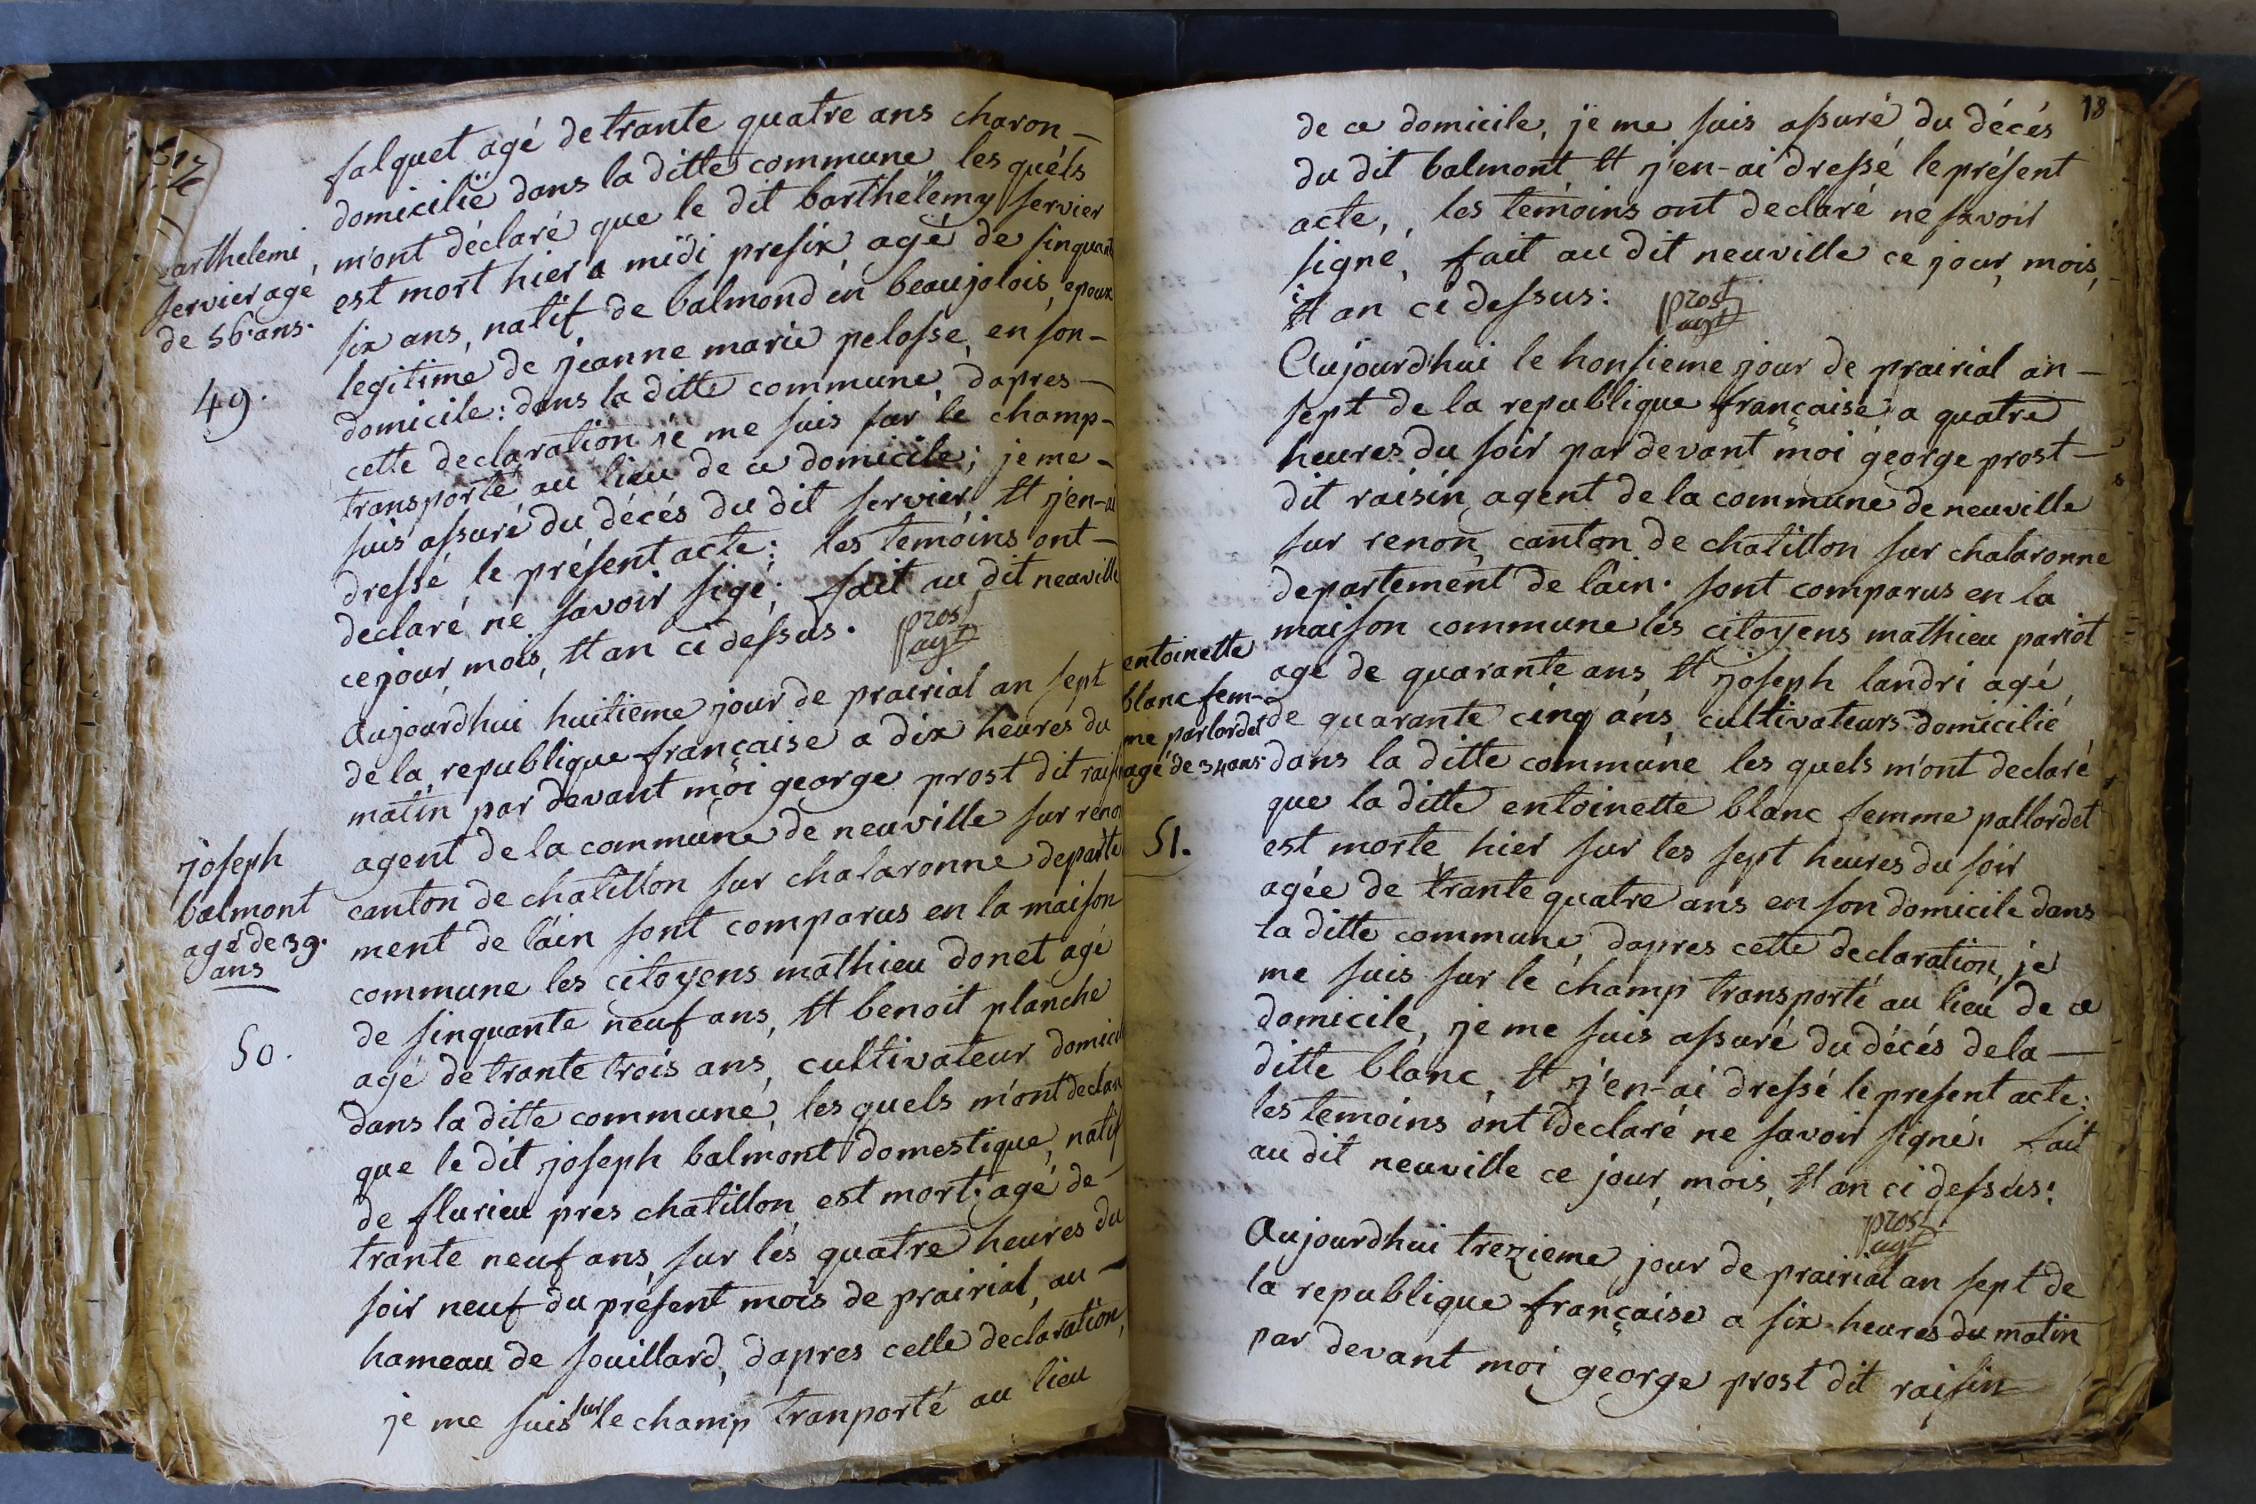 falquet agé de trante quatre ans charon-
domicilié dans la ditte commune, les quéls
m'ont déclaré que le dit barthélemy servier
est mort hier a midi prefix, agé de sinquante
six ans, natif de balmond en beaujolois, epoux
legitime de jeanne marie pelosse, en son-
domicile: dans la ditte commune, dapres-
cette declaration je me suis sur le champ-
transporté au lieu de ce domicile; je me-
suis assuré du décés du dit servier, et j'en-ai
dressé le présent acte; les temoins ont-
declaré ne savoir sigé; fait au dit neuville
ce jour, mois, et an ci dessus. prost
agt
barthelemi
servier agé
de 56 ans.
49.
Aujourd'hui huitieme jour de prairial an sept
de la republique française a dix heures du
matin par devant moi george prost dit raisin
agent de la commune de neuville sur renon
canton de chatillon sur chalaronne departe
ment de l'ain sont comparus en la maison
commune les citoyens mathieu donet agé
de sinquante neuf ans, et benoit planche
agé de trante trois ans, cultivateur domici
dans la ditte commune, les quels m'ont declaré
que le dit joseph balmont domestique, natif
de flurieu pres chatillon, est mort. agé de-
trante neuf ans, sur les quatre heures du
soir neuf du présent mois de prairial, au-
hameau de souillard, dapres cette declaration,
je me suis sur le champ tranporté au lieu
joseph
balmont
agé de 39.
ans
50.
18
de ce domicile, je me suis assuré du décés
du dit balmont et j'en-ai dressé le présent
acte, les témoins ont declaré ne savoir
signé, fait au dit neuville ce jour, mois,
et an ci dessus: prost
agt
Aujourd'hui le honsieme jour de prairial an-
sept de la republique française, a quatre
heures du soir par devant moi george prost-
dit raisin, agent de la commune de neuville
sur renon, canton de chatillon sur chalaronne
departement de l'ain. sont comparus en la
maison commune les citoyens mathieu pariot
agé de quarante ans, et joseph landri agé
de quarante cinq ans, cultivateurs domicilié
dans la ditte commune les quels m'ont declaré
que la ditte entoinette blanc femme pallordet
est morte, hier sur les sept heures du soir
agée de trante quatre ans en son domicile dans
la ditte commune, dapres cette declaration, je
me suis sur le champ transporté au lieu de ce
domicile, je me suis assuré du décés de la-
ditte blanc, et j'en-ai dressé le present acte;
les temoins ont declaré ne savoir signé. fait
au dit neuville ce jour, mois, et an ci dessus:
prost
agt
entoinette
blanc fem-
me parlordet
agé de 34 ans.
51.
Aujourdhui trezieme jour de prairial an sept de
la republique française a six heures du matin
par devant moi george prost dit raisin